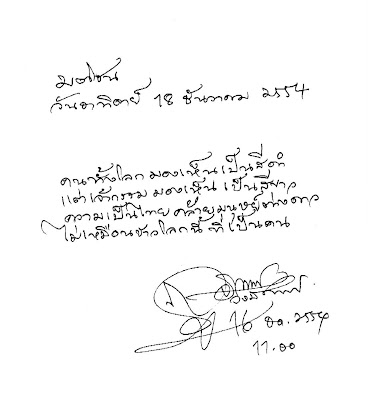 มติชน
วันอาทิตย์ 18 ธันวาคม 2554
คนทั้งโลก มองเห็นเป็นสีดำ
แต่เจ้ากรรม มองเห็น เป็นสีขาว
ความเป็นไทย คล้ายมนุษย์ต่างดาว
ไม่เหมือนชาวโลกนี้ ที่เป็นคน
16 ธค. 2554
11.00